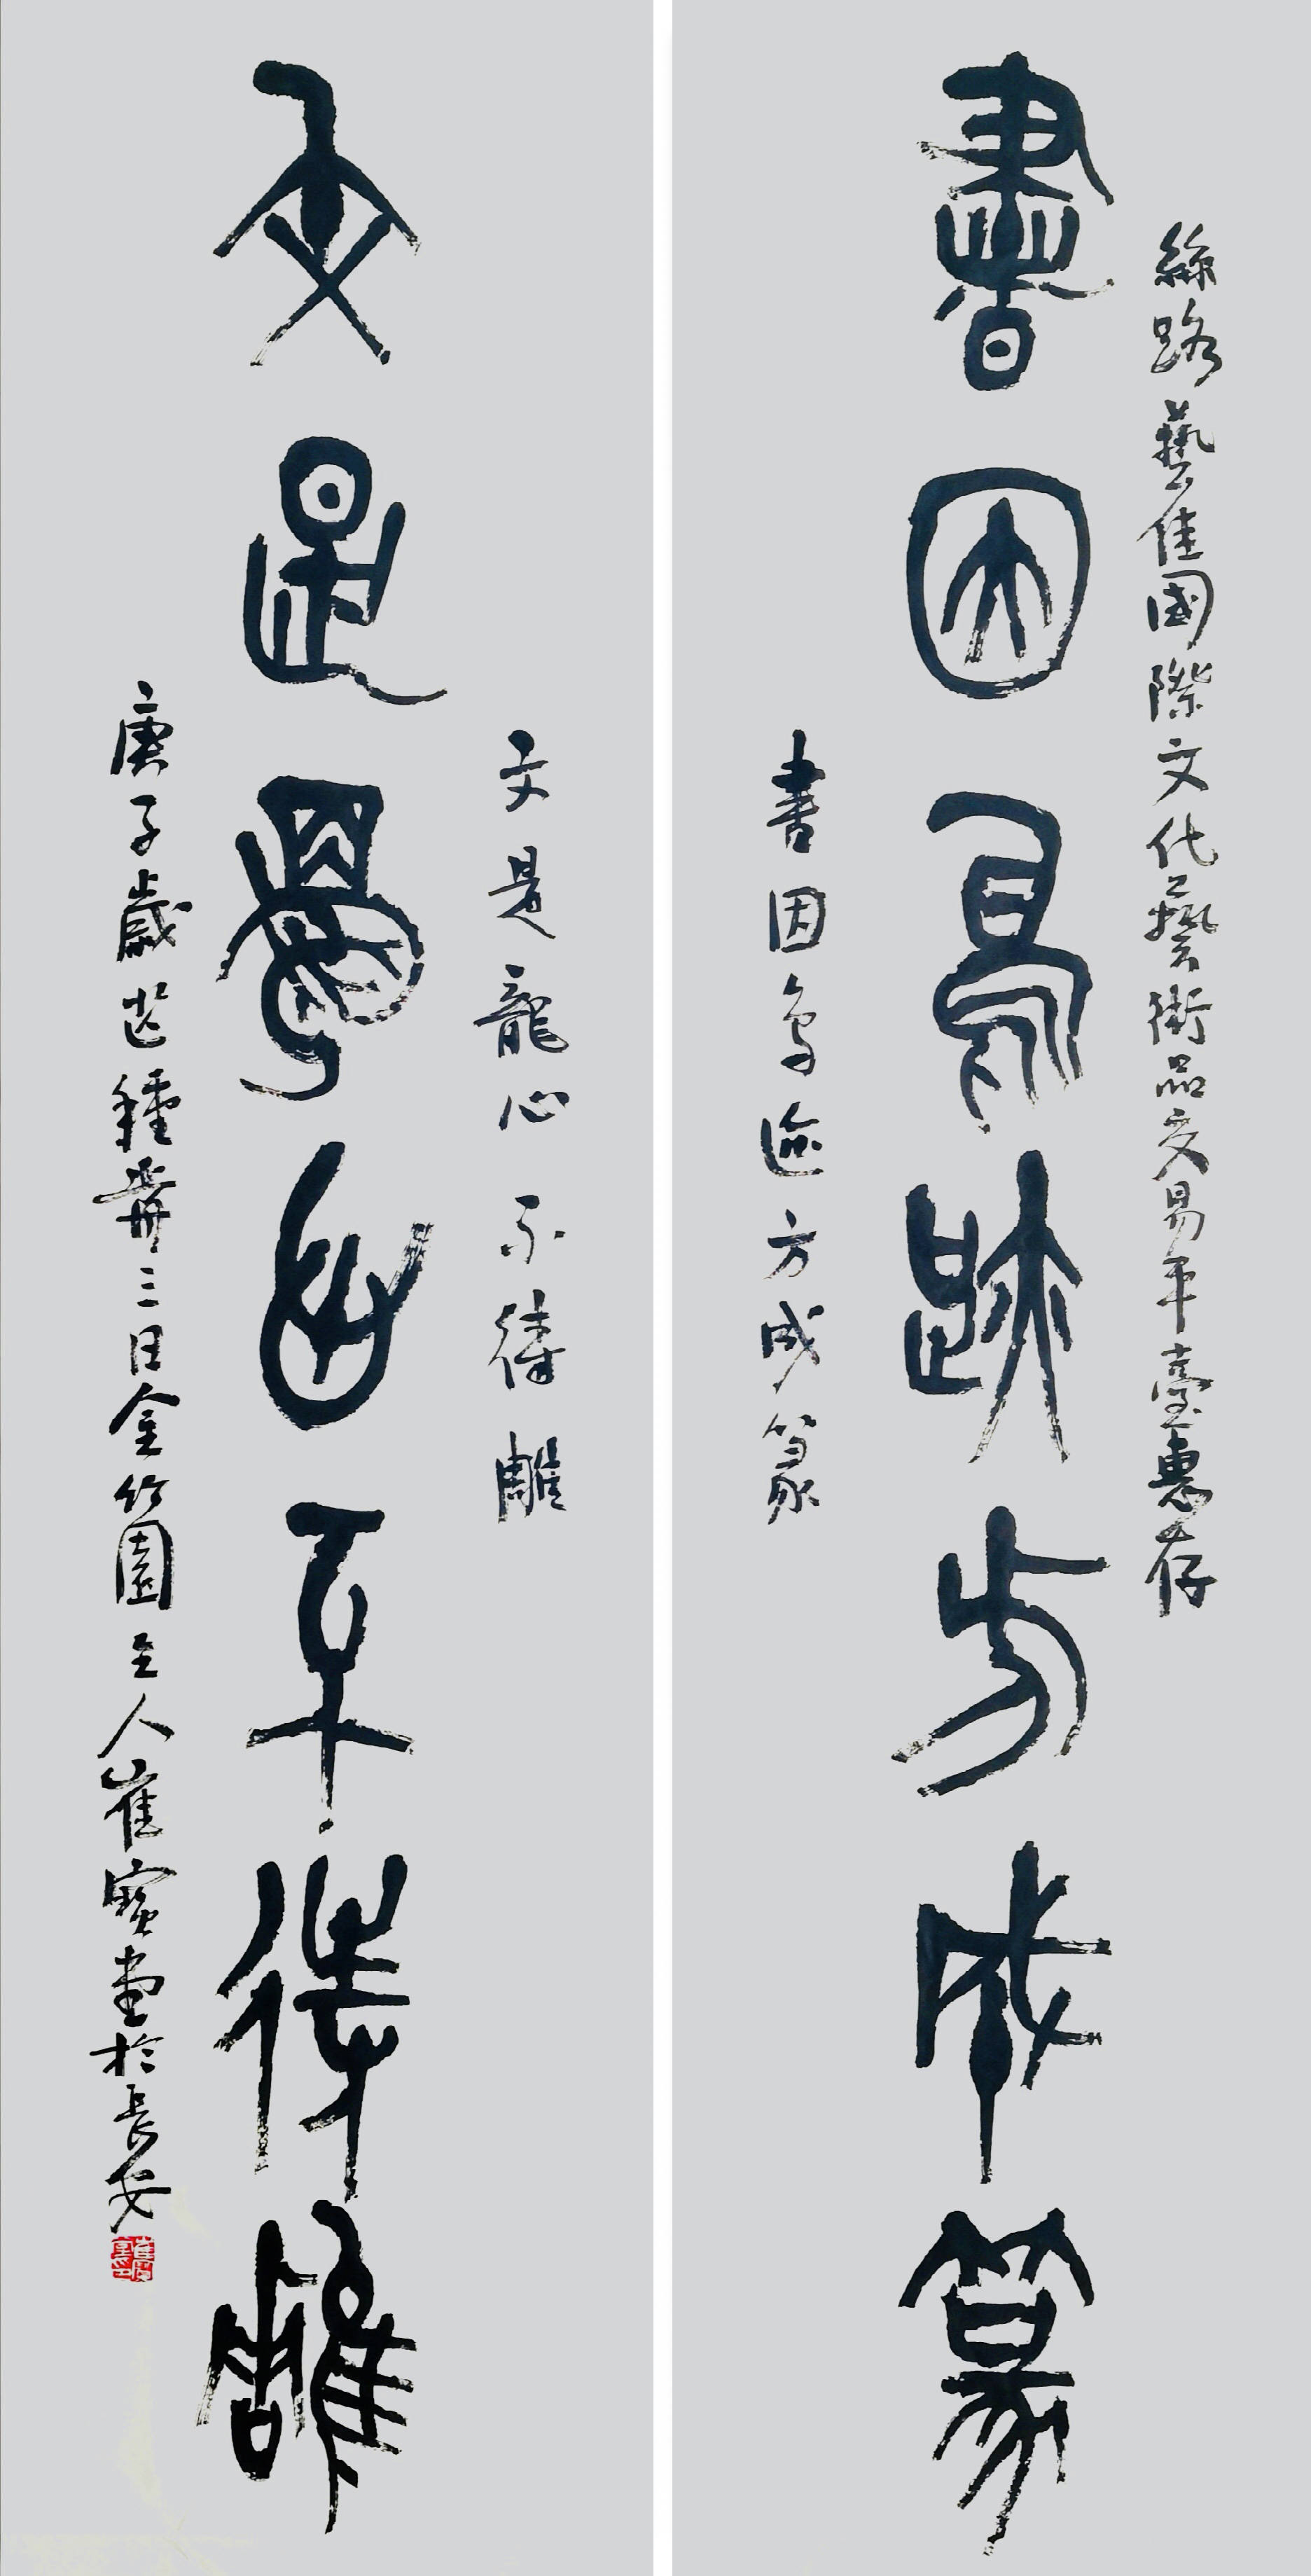 絲路藝佳國際文化藝術品交易平臺惠存
書因鳥跡方成篆
書因鳥迹方成篆
文是龍心不待雕
文是龍心不待雕
庚子歲芒種前三日金竹園主人崔寶堂於長安